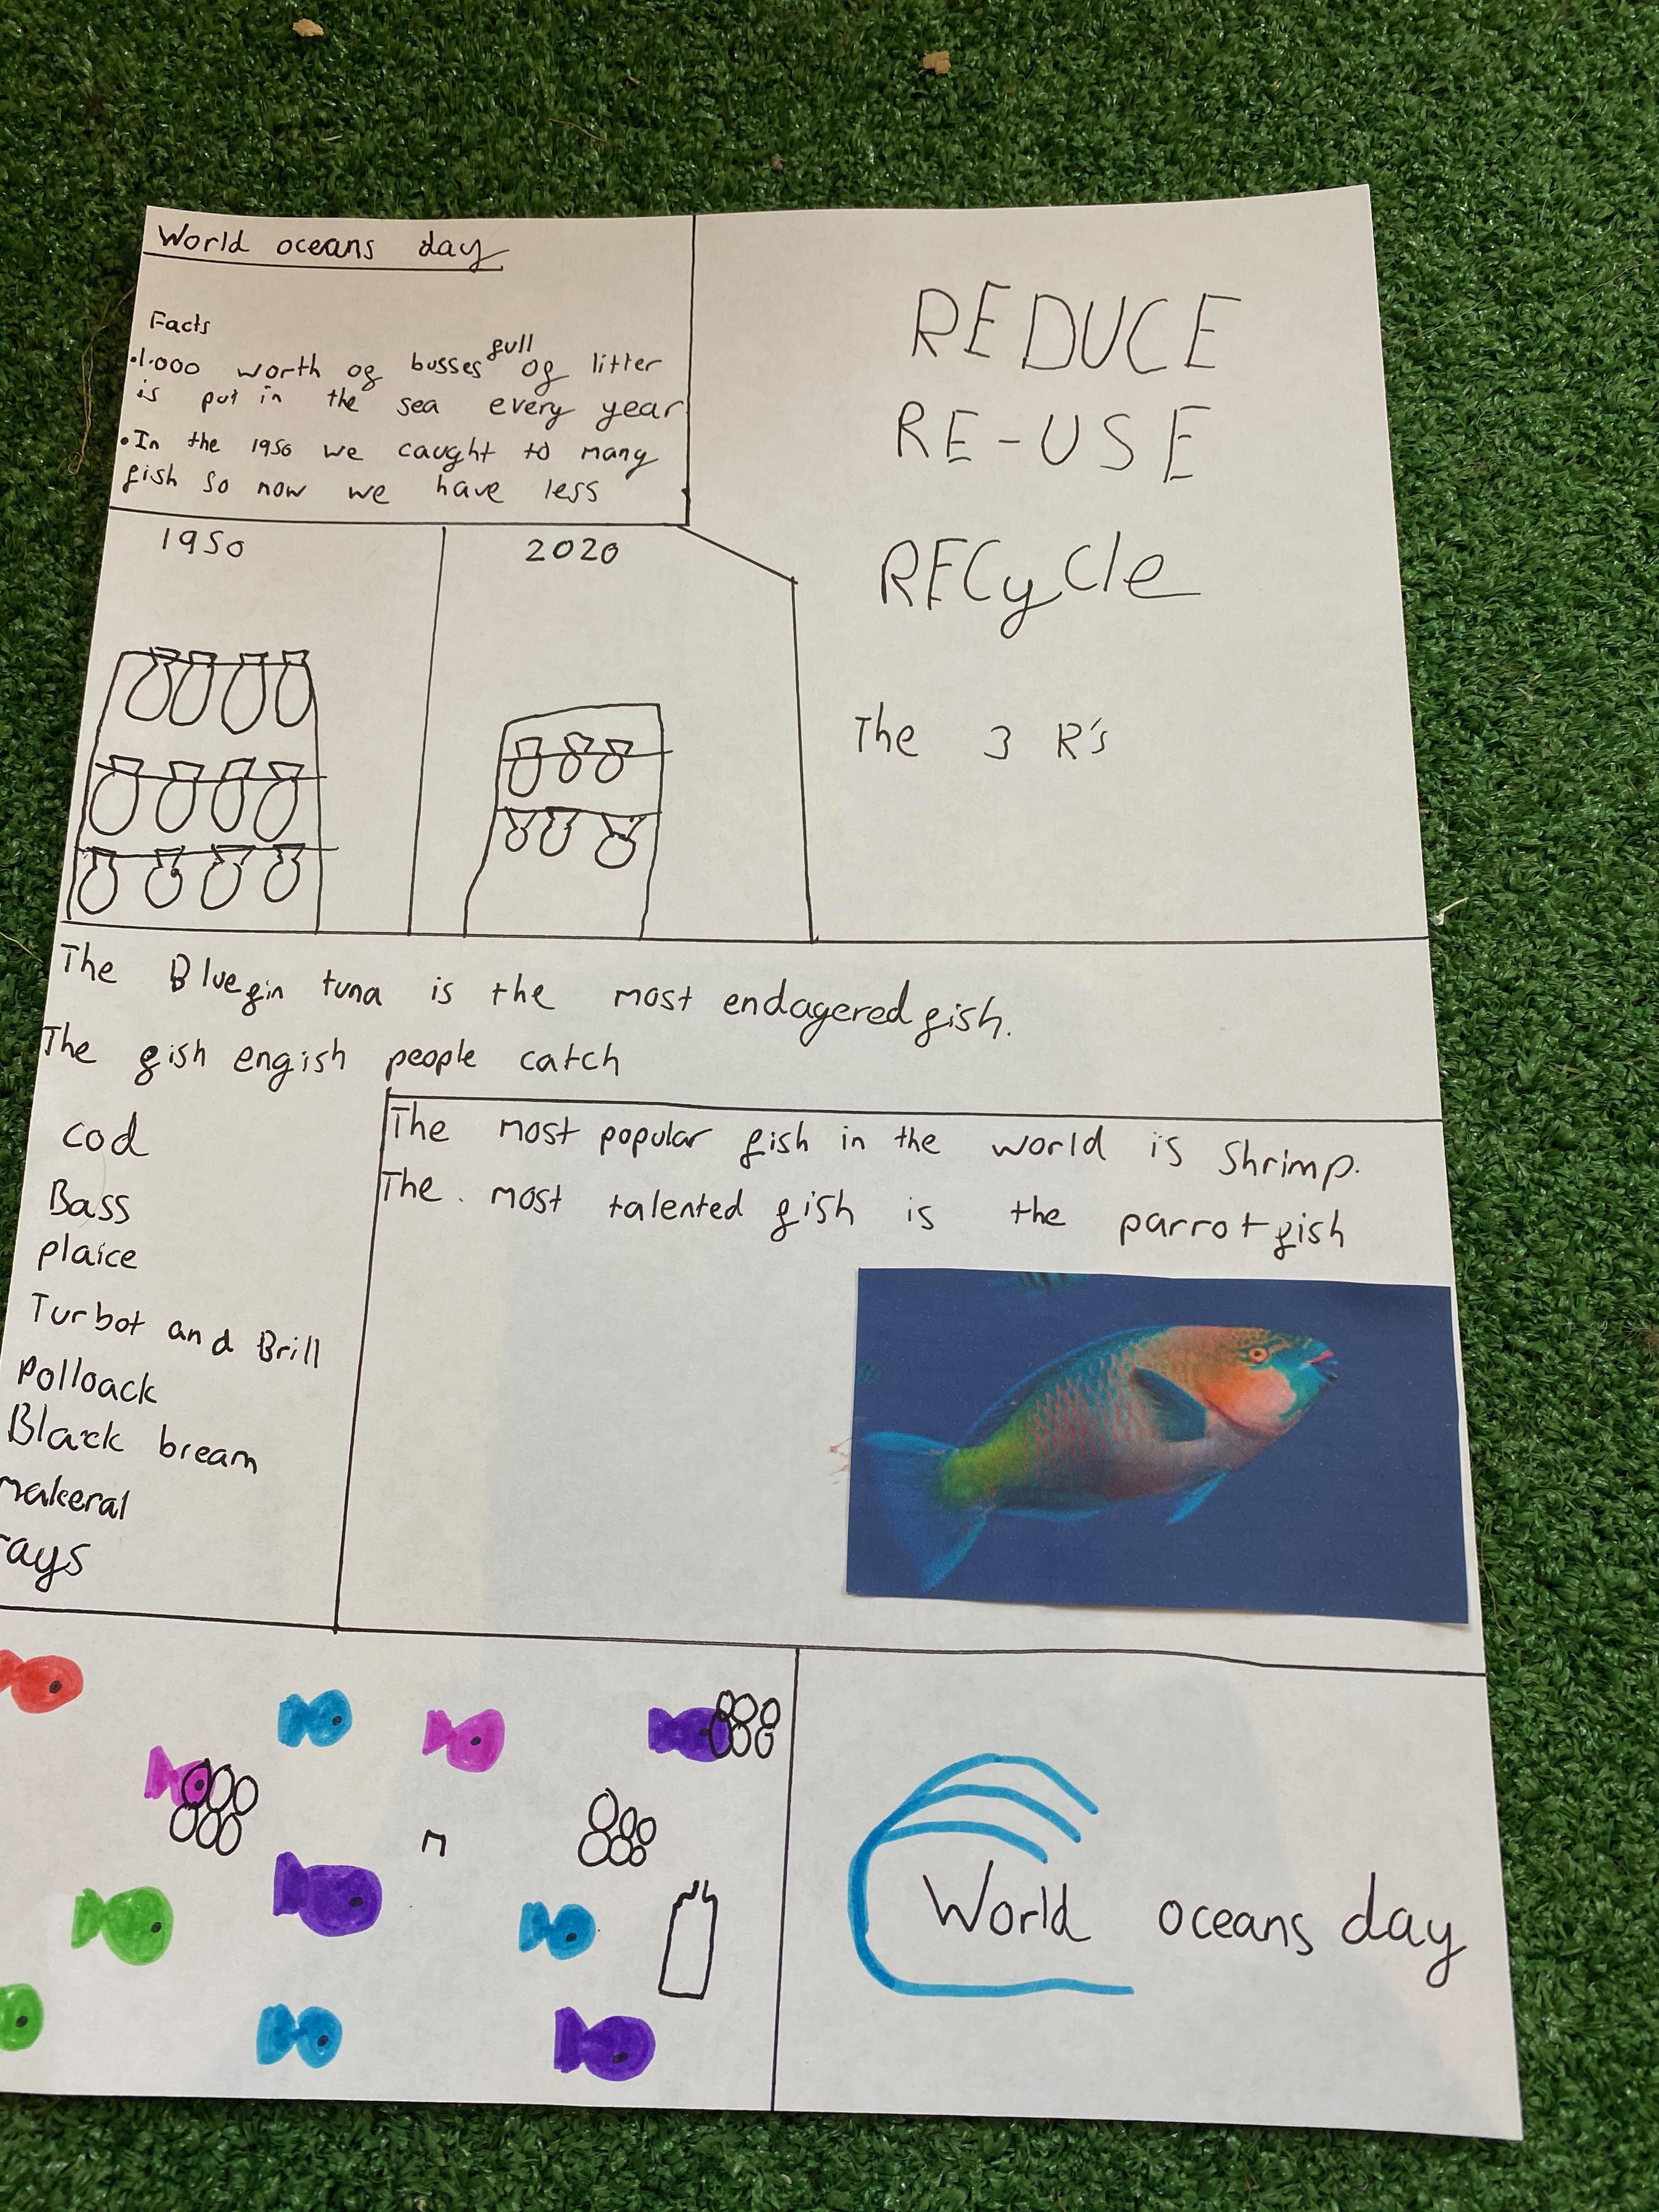 World oceans day
Facts
•1.000 worth of busses full of litter
is put in the sea every year
•In the 1950 we caught to many
fish so now we have less
REDUCE
RE-USE
RECycle
The 3 R's
1950
2020
The Bluefin tuna is the most endagered fish.
The fish engish people catch
cod
Bass
plaice
Turbot and Brill
Polloack
Black bream
makeral
rays
The most popular fish in the world is Shrimp.
The most talented fish is the parrotfish
World oceans day